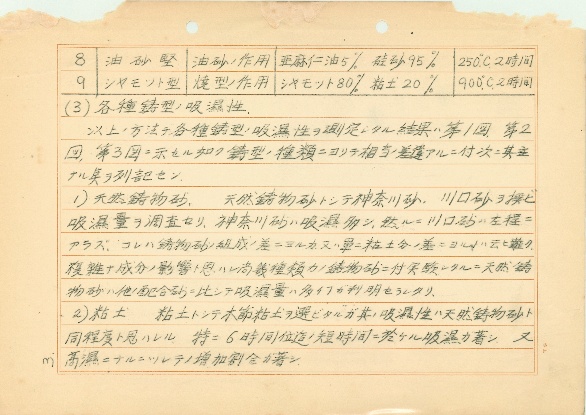 8 油砂型 油砂ノ作用 亜麻仁油5% 硅砂95% 250℃2時間
9 シャモット型 焼型ノ作用 シャモット80% 粘土20% 900℃2時間
(3) 各種鋳型ノ吸濕性.
以上ノ方法デ各種鋳型ノ吸濕性ヲ測定シタル結果ハ第1図 第2
図、第3図ニ示セル如ク鋳型ノ種類ニヨリテ相当差違アルニ付次ニ其主
ナル点ヲ列記セン.
1) 天然鋳物砂. 天然鋳物砂トシテ神奈川砂、川口砂ヲ擇ビ
吸濕量ヲ調査セリ、神奈川砂ハ吸濕多ク、然ルニ川口砂ハ左程ニ
アラズ、コレハ鋳物砂ノ組成ノ差ニヨルカ又ハ單ニ粘土分ノ差ニヨルカハ云ヒ難ク
複雑ナ成分ノ影響ト思ハレ尚幾種類カノ鋳物砂ニ付実験シタルニ天然鋳
物砂ハ他ノ配合砂ニ比シテ吸濕量ハ多イ事ガ判明セラレタリ.
2) 粘土 粘土トシテ木節粘土ヲ選ビタルガ其ノ吸濕性ハ天然鋳物砂ト
同程度ト思ハレル 特ニ6時間位迄ノ短時間ニ於ケル吸濕力著シ 又
高濕ニナルニツレテノ増加割合力著シ.
3.